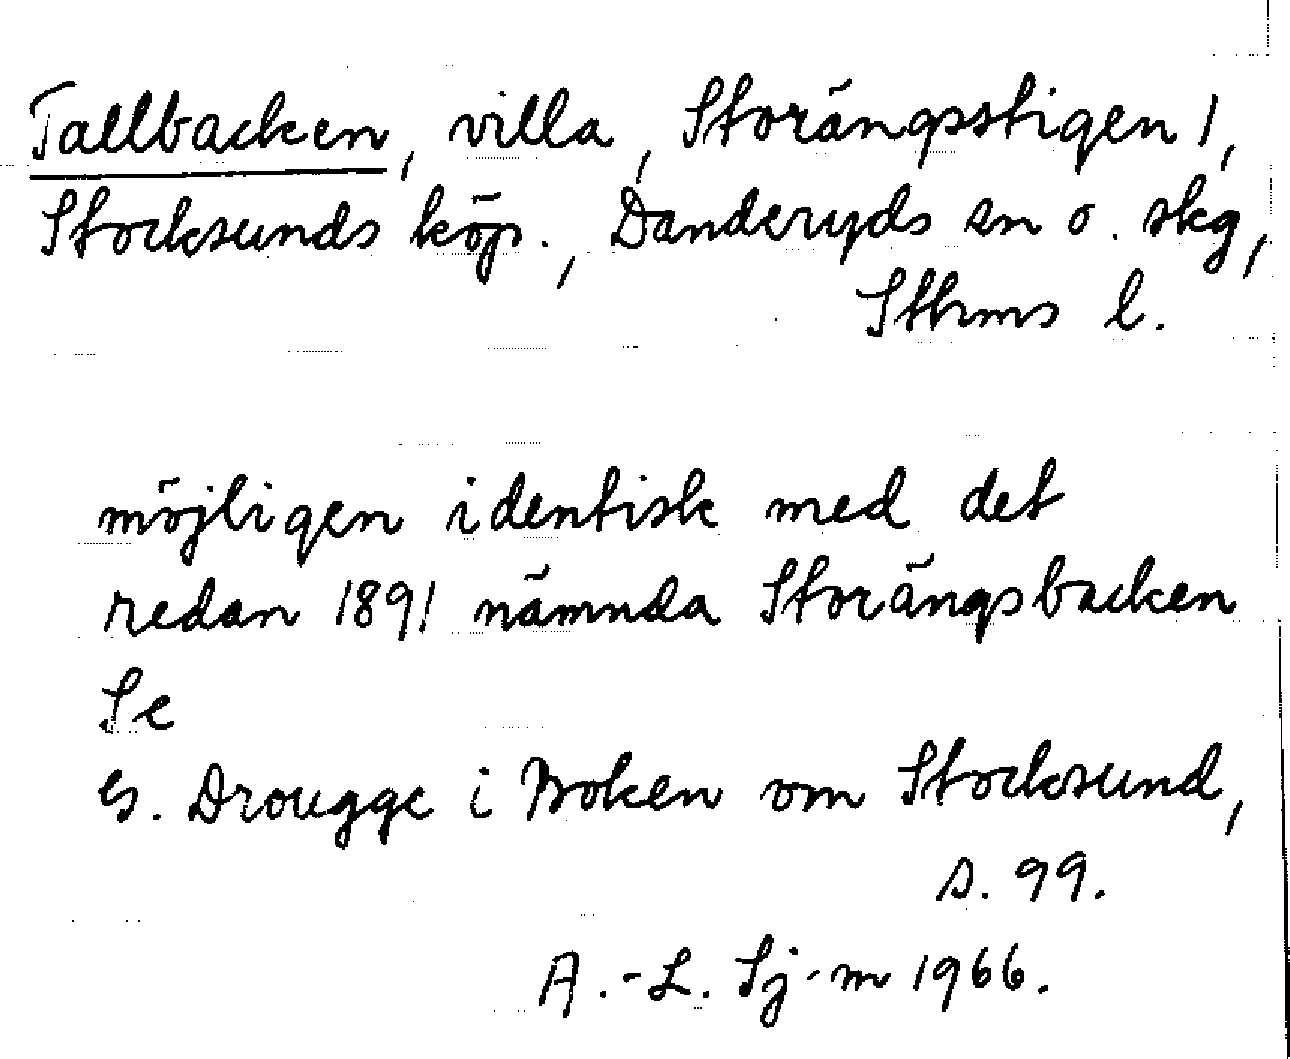 Tallbacken, villa, Storängsstigen 1,
Stocksunds köp., Danderyds sn o. skg,
Sthms l.
möjligen identisk med det
redan 1891 nämnda Storängsbacken
Se
G. Drougge i Boken om Stocksund,
s. 99.
A.-L. Sj-m 1966.